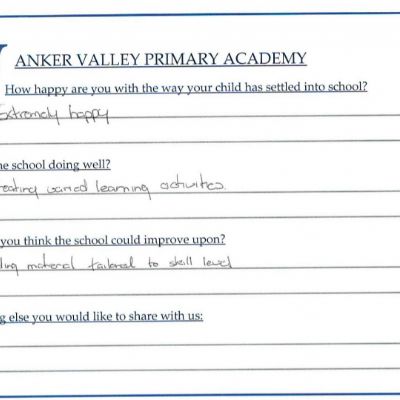 ANKER VALLEY PRIMARY ACADEMY
How happy are you with the way your child has settled into school?
Extremely happy
he school doing well?
reating varied learning activities.
you think the school could improve upon?
ding material tailored to skill level
g else you would like to share with us: